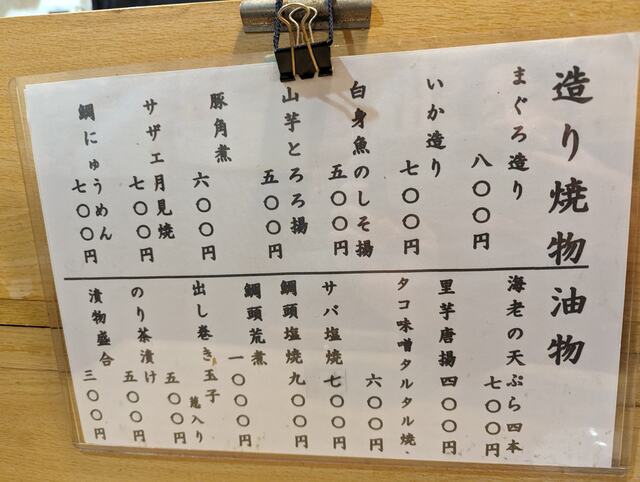 造り焼物油物
まぐろ造り
八〇〇円
いか造り
七〇〇円
白身魚のしそ揚
五〇〇円
山芋とろろ揚
五〇〇円
豚角煮
六〇〇円
サザエ月見焼
七〇〇円
鯛にゅうめん
七〇〇円
海老の天ぷら四本
七〇〇円
里芋唐揚
四〇〇円
タコ味噌タルタル焼
六〇〇円
サバ塩焼
七〇〇円
鯛頭塩焼
九〇〇円
鯛頭荒煮
一〇〇〇円
出し巻き玉子
葱入り
五〇〇円
のり茶漬け
五〇〇円
漬物盛合
三〇〇円